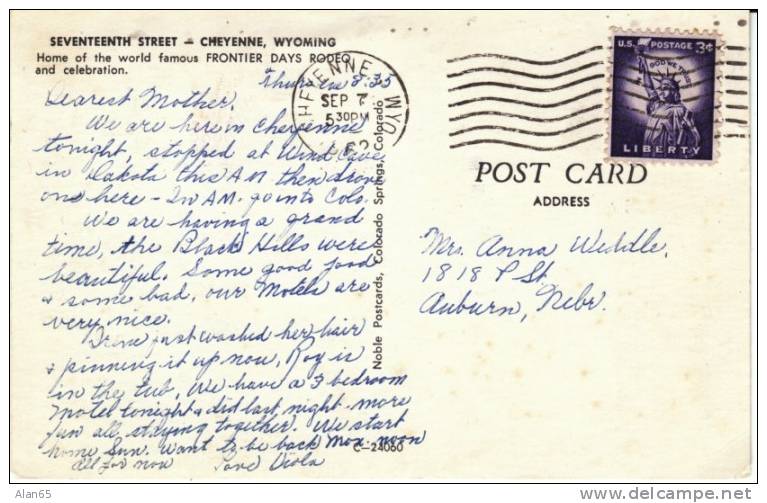 SEVENTEENTH STREET — CHEYENNE, WYOMING
Home of the world famous FRONTIER DAYS RODEO
and celebration.
Thurs eve 8:35
Dearest Mother,
We are here in Cheyenne
tonight, stopped at Wind Cave
in Dakota this AM then drove
on here - in AM. go into Colo.
We are having a grand
time, the Black Hills were
beautiful. Some good food
& some bad, our Motels are
very nice.
Irene just washed her hair
& pinning it up now, Roy is
in the tub, We have a 3 bedroom
Motel tonight & did last night - more
fun all staying together. We start
home Sun. Want to be back Mon. noon
all for now Love Viola
Noble Postcards, Colorado Springs, Colorado
C-24060
CHEYENNE WYO
SEP 7
5 30PM
U.S. POSTAGE 3¢
IN GOD WE TRUST
LIBERTY
POST CARD
ADDRESS
Mrs. Anna Weddle,
1818 P St.
Auburn, Nebr.
Alan65
www.delcampe.net